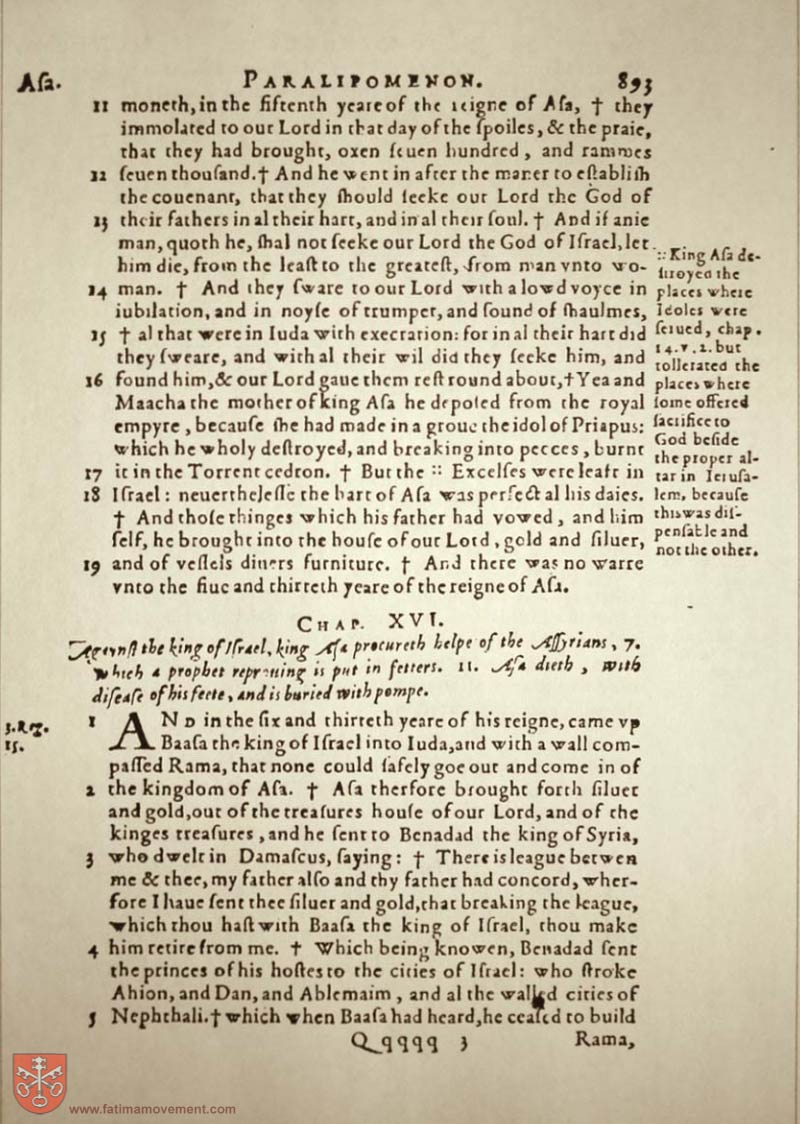 Aſa.
PARALIPOMENON.
893
11 moneth, in the fifteenth yeare of the reigne of Aſa, † they
immolated to our Lord in that day of the ſpoiles, & the praie,
that they had brought, oxen ſeuen hundred, and rammes
12 ſeuen thouſand. † And he went in after the maner to eſtabliſh
the couenant, that they ſhould ſeeke our Lord the God of
13 their fathers in al their hart, and in al their ſoul. † And if anie
man, quoth he, ſhal not ſeeke our Lord the God of Iſrael, let
him die, from the leaſt to the greateſt, from man vnto wo-
14 man. † And they ſware to our Lord with a lowd voyce in
iubilation, and in noyſe of trumpet, and ſound of ſhaulmes,
15 † al that were in Iuda with execration: for in al their hart did
they ſweare, and with al their wil did they ſeeke him, and
16 found him, & our Lord gaue them reſt round about, † Yea and
Maacha the mother of king Aſa he depoſed from the royal
empyre, becauſe ſhe had made in a groue the idol of Priapus:
which he wholy deſtroyed, and breaking into peeces, burnt
17 it in the Torrent cedron. † But the :: Excelſes were leaft in
18 Iſrael: neuertheleſſe the hart of Aſa was perfect al his daies.
† And thoſe thinges which his father had vowed, and him
ſelf, he brought into the houſe of our Lord, gold and ſiluer,
19 and of veſſels diuers furniture. † And there was no warre
vnto the fiue and thirteth yeare of the reigne of Aſa.
:: King Aſa de-
ſtroyed the
places where
Idoles were
ſerued, chap.
14. v. 2. but
tollerated the
places where
ſome offered
ſacrifice to
God beſide
the proper al-
tar in Ieruſa-
lem, becauſe
this was diſ-
penſable and
not the other.
CHAP. XVI.
Againſt the king of Iſrael, king Aſa procureth helpe of the Aſſyrians, 7.
which a prophet reprouing is put in fetters. 11. Aſa dieth, with
diſeaſe of his feete, and is buried with pompe.
3. Reg.
15.
1 AND in the ſix and thirteth yeare of his reigne, came vp
Baaſa the king of Iſrael into Iuda, and with a wall com-
paſſed Rama, that none could ſafely goe out and come in of
2 the kingdom of Aſa. † Aſa therfore brought forth ſiluer
and gold, out of the treaſures houſe of our Lord, and of the
kinges treaſures, and he ſent to Benadad the king of Syria,
3 who dwelt in Damaſcus, ſaying: † There is league betwen
me & thee, my father alſo and thy father had concord, wher-
fore I haue ſent thee ſiluer and gold, that breaking the league,
which thou haſt with Baaſa the king of Iſrael, thou make
4 him retire from me. † Which being knowen, Benadad ſent
the princes of his hoſtes to the cities of Iſrael: who ſtroke
Ahion, and Dan, and Ablemaim, and al the walled cities of
5 Nephthali. † which when Baaſa had heard, he ceaſed to build
Qqqqq 3
Rama,
www.fatimamovement.com